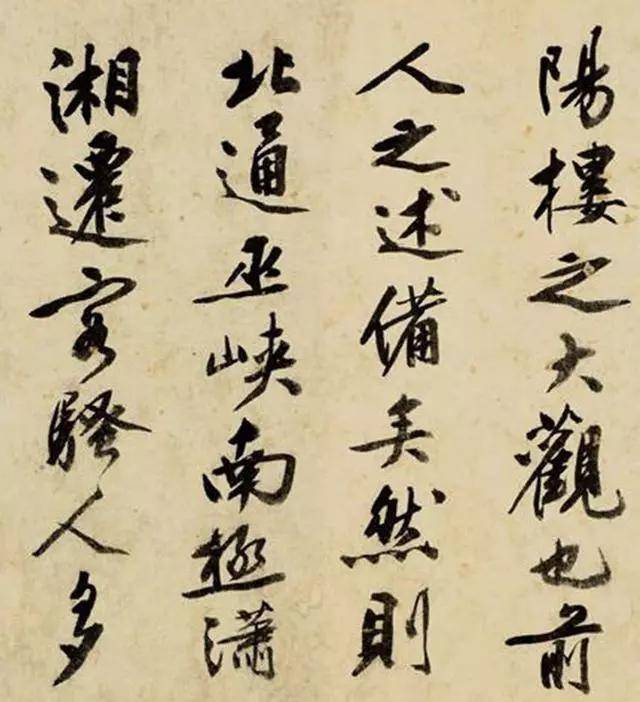 陽樓之大觀也前
人之述備矣然則
北通巫峽南極潇
湘遷客騷人多